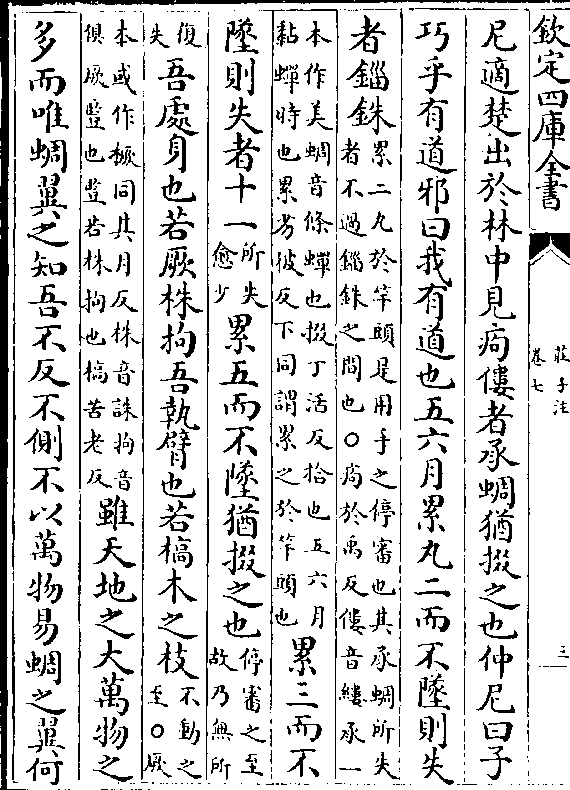 欽定四庫全書
莊子注
卷七
三
尼適楚出於林中見痀僂者承蜩猶掇之也仲尼曰子
巧乎有道邪曰我有道也五六月累丸二而不墜則失
者錙銖
累二丸於竿頭是用手之停審也其承蜩所失
者不過錙銖之間也○痀於禹反僂音縷承一
本作美蜩音條蟬也掇丁活反拾也五六月
黏蟬時也累劣彼反下同謂累之於竿頭也
累三而不
墜則失者十一
所失
愈少
累五而不墜猶掇之也
停審之至
故乃無所
復
失
吾處身也若厥株拘吾執臂也若槁木之枝
不動之
至○厥
本或作橛同其月反株音誅拘音
俱厥豎也豎若株拘也槁苦老反
雖天地之大萬物之
多而唯蜩翼之知吾不反不側不以萬物易蜩之翼何